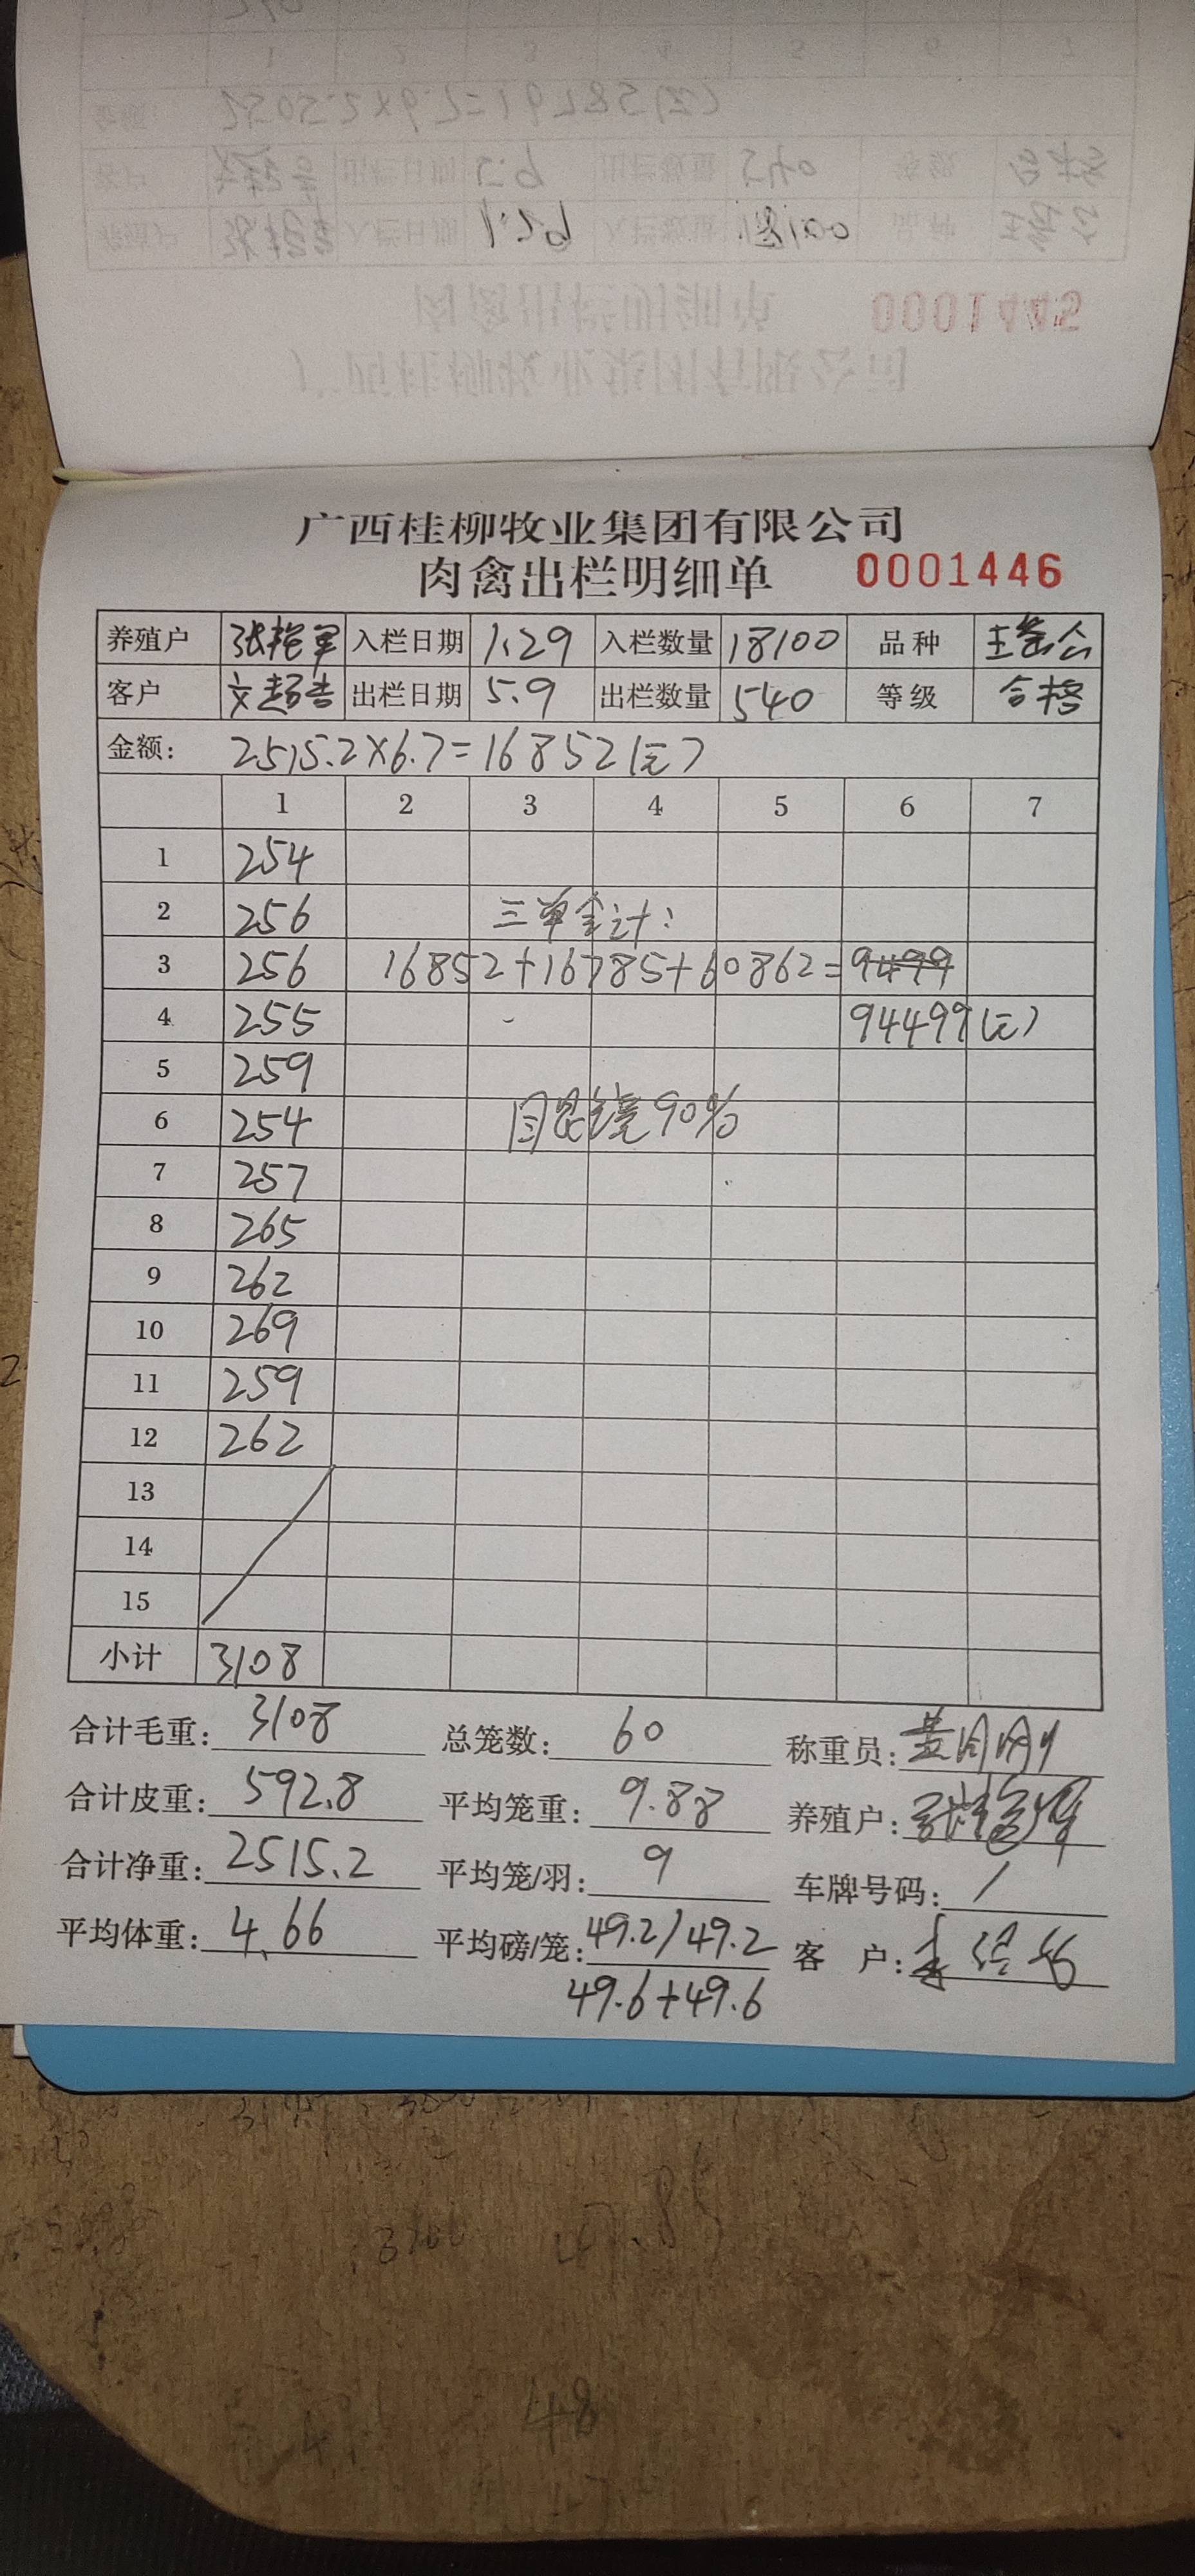 0001445
广西桂柳牧业集团有限公司
肉禽出栏明细单 0001446
养殖户 张艳军 入栏日期 1.29 入栏数量 18100 品种
客户 出栏日期 5.9 出栏数量 540 等级 合格
金额: 2515.2×6.7=16852(元)
1 2 3 4 5 6 7
1 254
2 256 三单合计:
3 256 16852+16785+60862=9499
4 255 94499(元)
5 259
6 254 90%
7 257
8 265
9 262
10 269
11 259
12 262
13
14
15
小计 3108
合计毛重: 3108 总笼数: 60 称重员:
合计皮重: 592.8 平均笼重: 9.88 养殖户: 张艳军
合计净重: 2515.2 平均笼/羽: 9 车牌号码: /
平均体重: 4.66 平均磅/笼: 49.2/49.2 客 户:
49.6+49.6